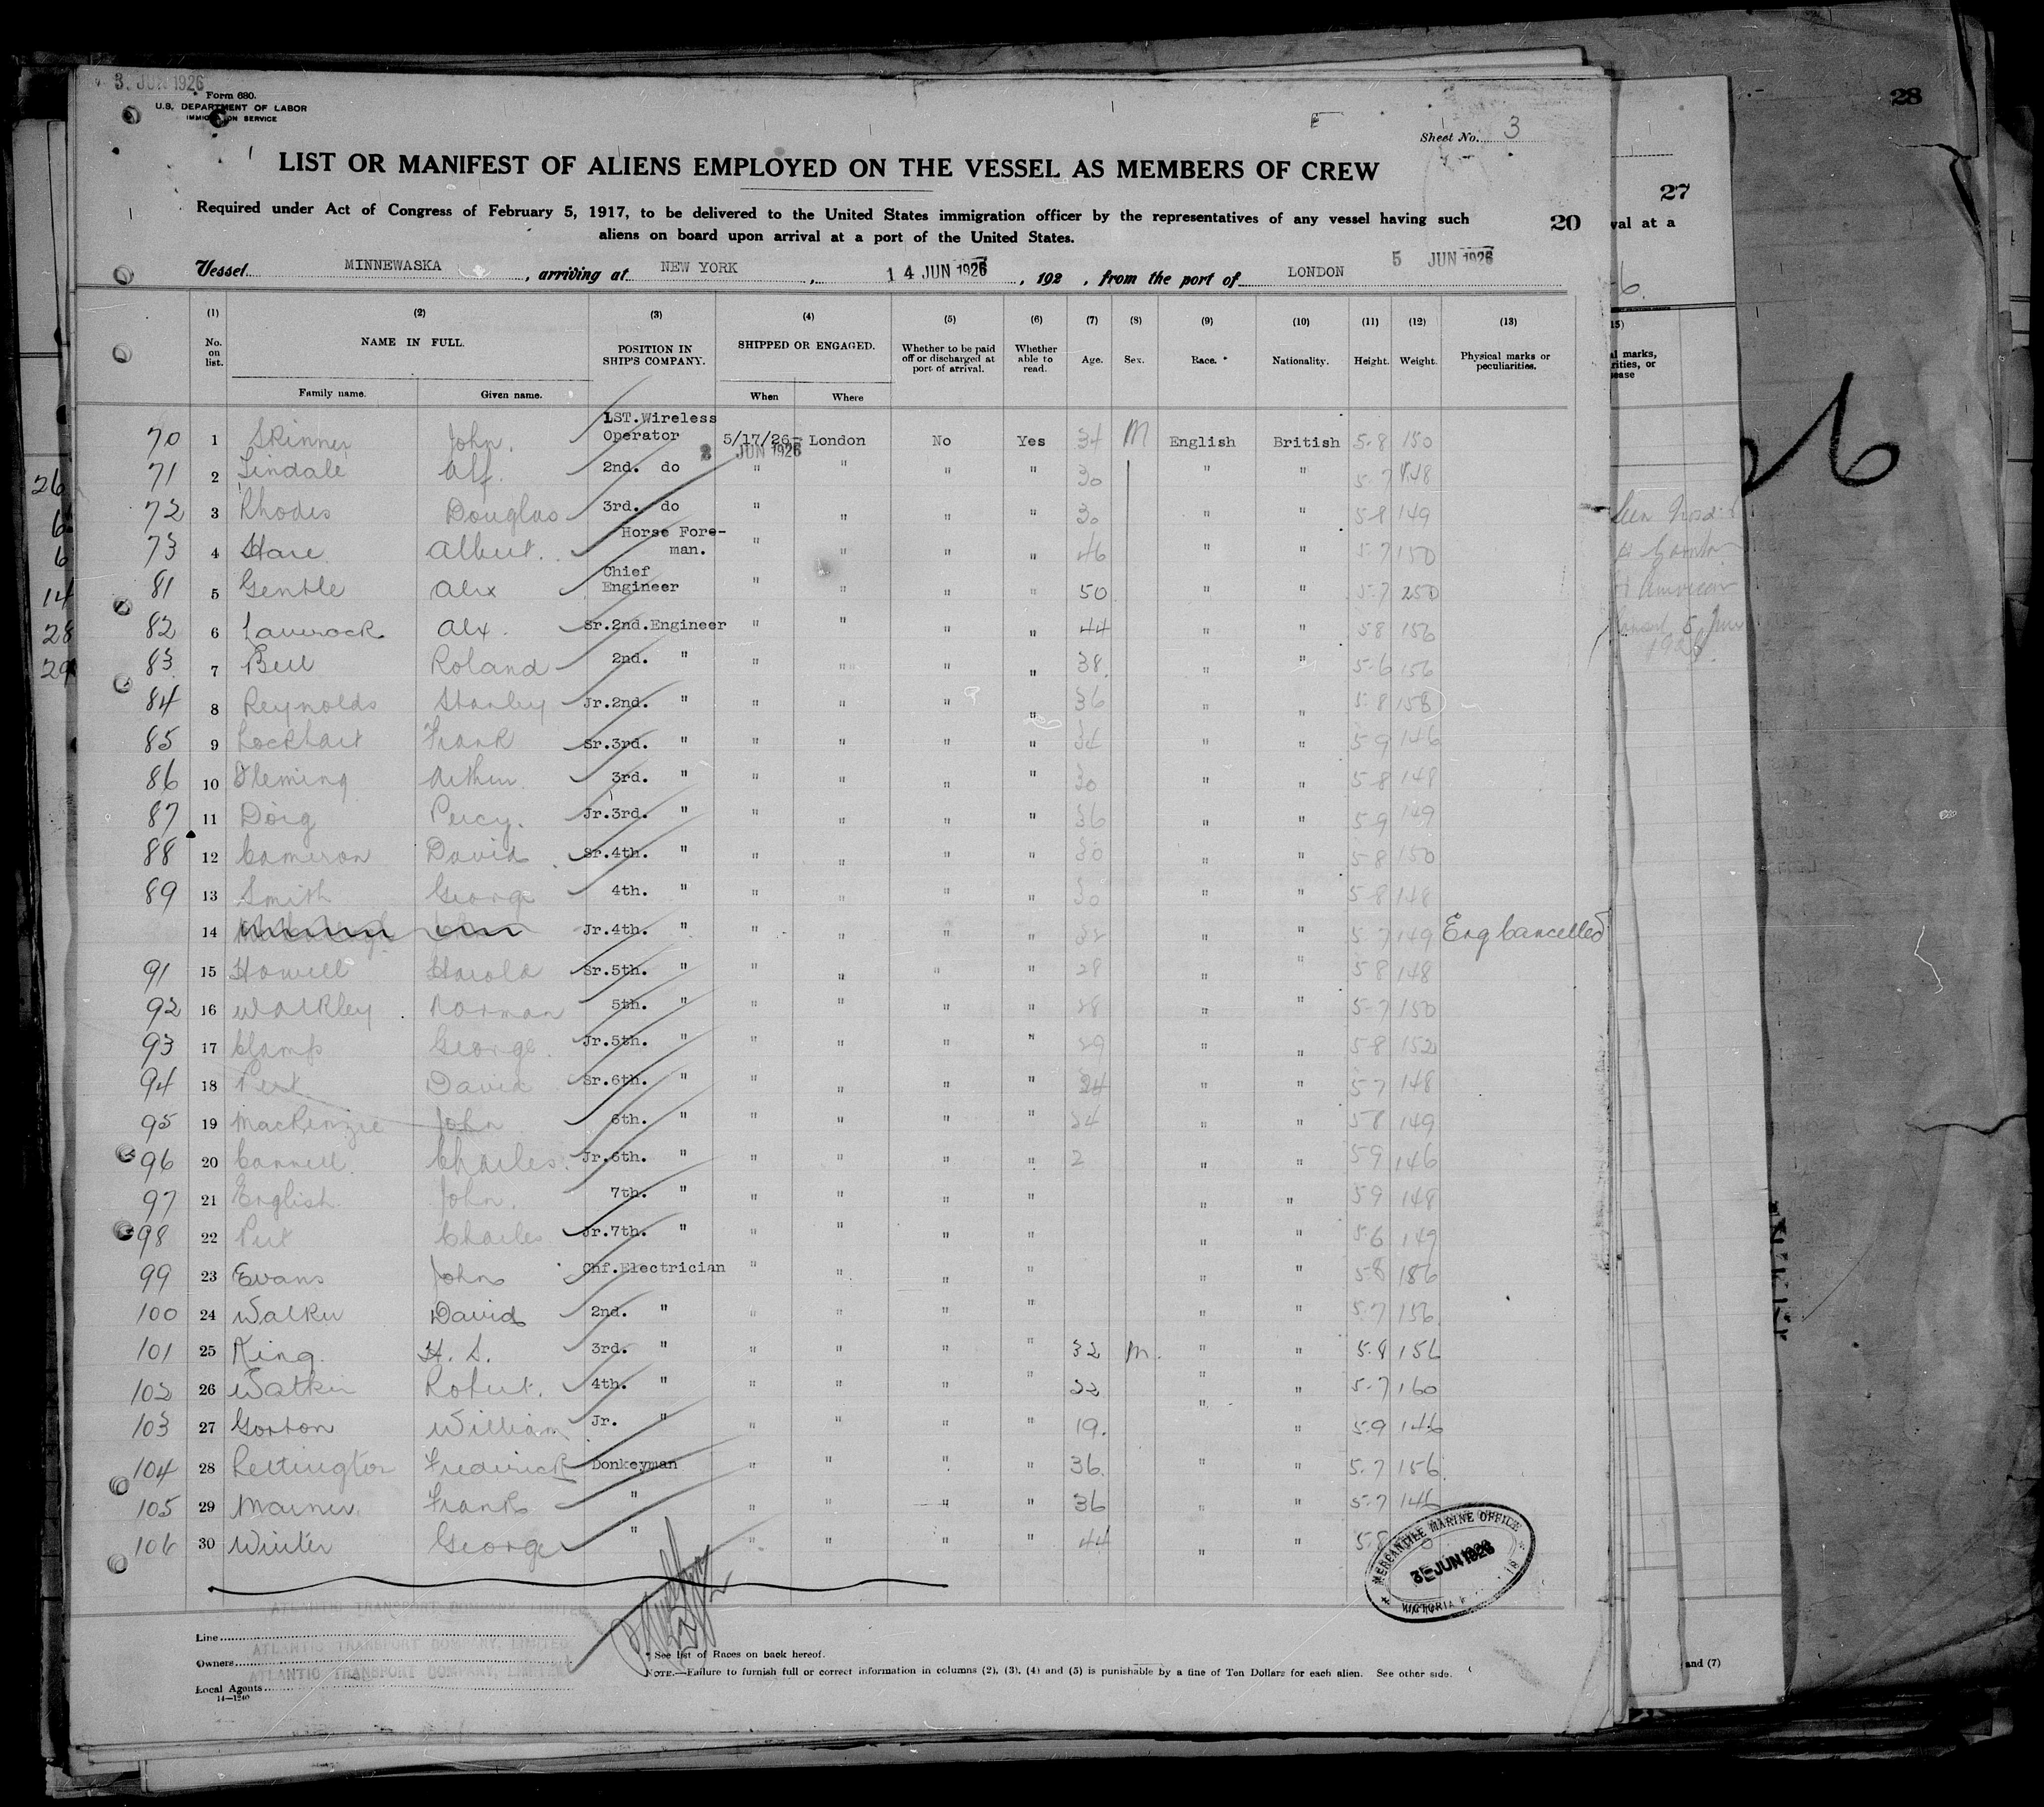 3. JUN 1926
Form 680.
U.S. DEPARTMENT OF LABOR
IMMIGRATION SERVICE
Sheet No. 3
28
LIST OR MANIFEST OF ALIENS EMPLOYED ON THE VESSEL AS MEMBERS OF CREW
27
Required under Act of Congress of February 5, 1917, to be delivered to the United States immigration officer by the representatives of any vessel having such
20
aliens on board upon arrival at a port of the United States.
val at a
Vessel MINNEWASKA, arriving at NEW YORK, 14 JUN 1926, 192 , from the port of LONDON 5 JUN 1926
(1) (2) (3) (4) (5) (6) (7) (8) (9) (10) (11) (12) (13)
No. on list. NAME IN FULL. POSITION IN SHIP'S COMPANY. SHIPPED OR ENGAGED. Whether to be paid off or discharged at port of arrival. Whether able to read. Age. Sex. Race.* Nationality. Height. Weight. Physical marks or peculiarities.
Family name. Given name. When Where
70 1 Skinner John. 1ST.Wireless Operator 5/17/26- London No Yes 34 M English British 5-8 150
2 JUN 1926
71 2 Lindale Alf. 2nd. do " " " " 30 " " 5-7 148
72 3 Rhodes Douglas 3rd. do " " " " 30 " " 5-8 149
73 4 Hare Albert. Horse Foreman. " " " " 46 " " 5-7 150
81 5 Gentle Alex Chief Engineer " " " " 50 " " 5-7 250
82 6 Laverock Alx. Sr.2nd.Engineer " " " " 44 " " 5 8 156
83 7 Bell Roland 2nd. " " " " " 38. " " 5-6 156
84 8 Reynolds Stanley Jr.2nd. " " " " " 36 " " 5-8 158
85 9 Lockhart Frank Sr.3rd. " " " " " 34 " " 5-9 146
86 10 Fleming Arthur. 3rd. " " " " " 30 " " 5-8 148
87 11 Doig Percy. Jr.3rd. " " " " " 36 " " 5-9 149
88 12 Cameron David Sr.4th. " " " " " 30 " " 5-8 150
89 13 Smith George 4th. " " " " " 30 " " 5-8 148
14 Jr.4th. " " " " " 32 " " 5-7 149 Eng Cancelled
91 15 Howell Harold Sr.5th. " " " " " 28 " " 5 8 148
92 16 Walkley Norman 5th. " " " " " 28 " " 5-7 150
93 17 Clamp George. Jr.5th. " " " " " 29 " " 5 8 152
94 18 Pert David Sr.6th. " " " " " 24 " " 5-7 148
95 19 MacKenzie John 6th. " " " " " 24 " " 5 8 149
96 20 Cannell. Charles. Jr.6th. " " " " " 2 " " 5 9 146
97 21 English John. 7th. " " " " " " " 5 9 148
98 22 Pert Charles Jr.7th. " " " " " " " 5-6 149
99 23 Evans John Chf.Electrician " " " " " " 5 8 186
100 24 Walker David 2nd. " " " " " " " 5-7 156
101 25 King. H. S. 3rd. " " " " " 32 M. " " 5.8 156
102 26 Watkin Robert. 4th. " " " " " 22 " " 5-7 160
103 27 Gorton William Jr. " " " " " 19. " " 5.9 146
104 28 Rettington Frederick Donkeyman " " " " 36. " " 5.7 156
105 29 Mariner. Frank " " " " " 36 " 5-7 146
106 30 Winter George " " " " " 44 " " 5.8
MERCANTILE MARINE OFFICE
3 JUN 1926
VICTORIA
ATLANTIC TRANSPORT COMPANY, LIMITED
Line
ATLANTIC TRANSPORT COMPANY, LIMITED
Owners
ATLANTIC TRANSPORT COMPANY, LIMITED
Local Agents
14—1240
* See list of Races on back hereof.
NOTE.—Failure to furnish full or correct information in columns (2), (3), (4) and (5) is punishable by a fine of Ten Dollars for each alien. See other side.
and (7)
26
6
6
14
28
29
26